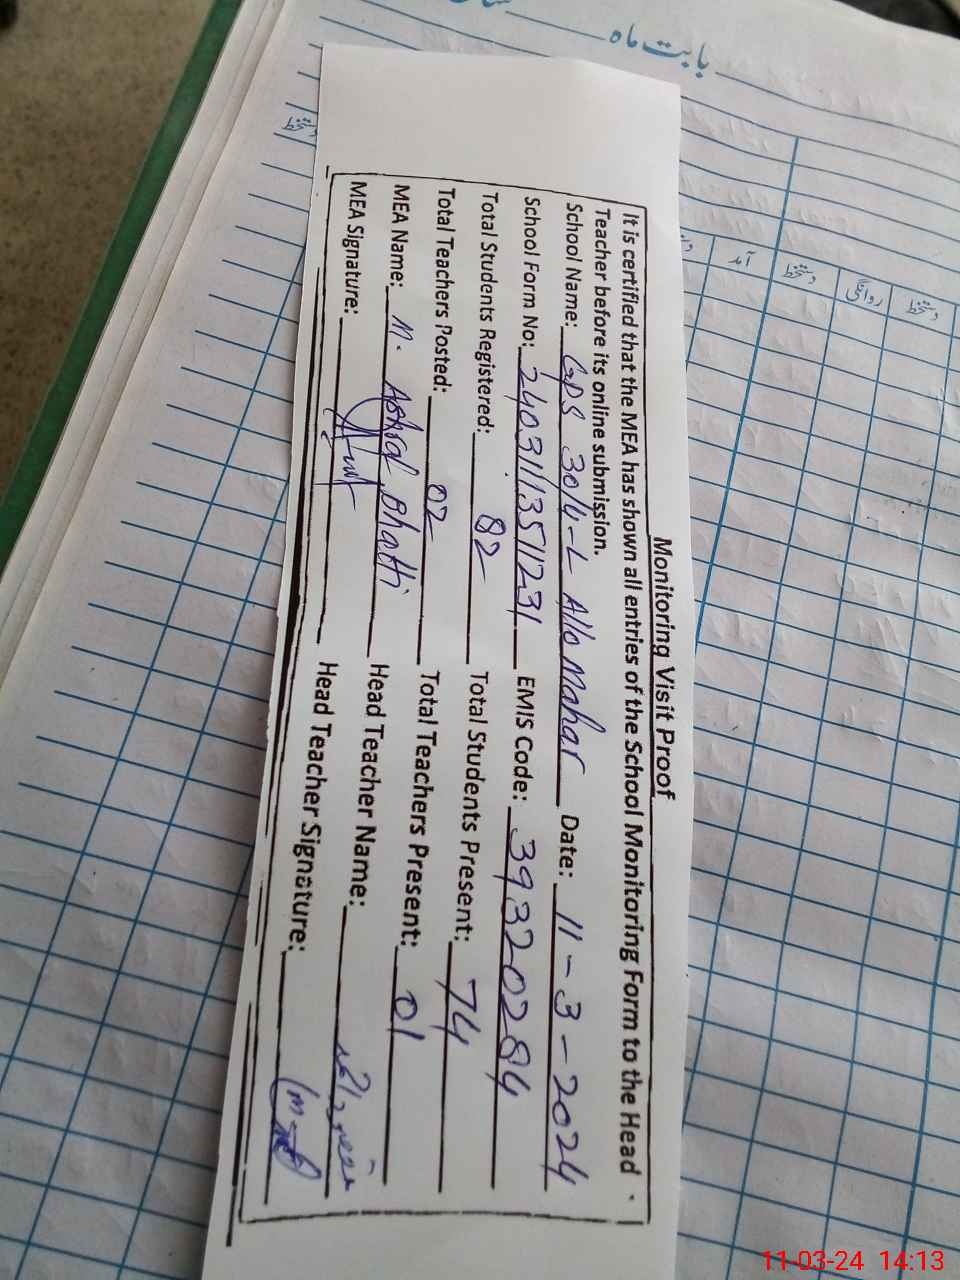 بابت ماہ
دستخط
آمد
دستخط
روانگی
دستخط
Monitoring Visit Proof
It is certified that the MEA has shown all entries of the School Monitoring Form to the Head
Teacher before its online submission.
School Name: GPS 30/4-L Allo Mahar Date: 11-3-2024
School Form No: 2403113511231 EMIS Code: 39320284
Total Students Registered: 82 Total Students Present: 74
Total Teachers Posted: 02 Total Teachers Present: 01
MEA Name: M. Ashraf Bhatti Head Teacher Name:
MEA Signature: Head Teacher Signature:
11-03-24 14:13